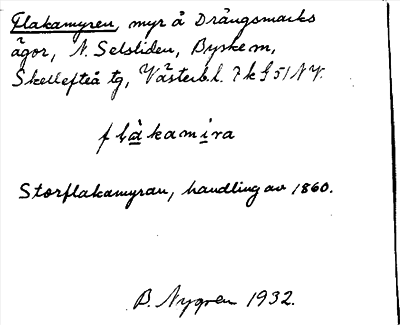 Flakamyren, myr å Drängsmarks
ägor, N. Selsliden, Byske sn,
Skellefteå tg, Västerb. l. 7 k f 51 NV.
flàkamira
Storflakamyran, handling av 1860.
B. Nygren 1932.